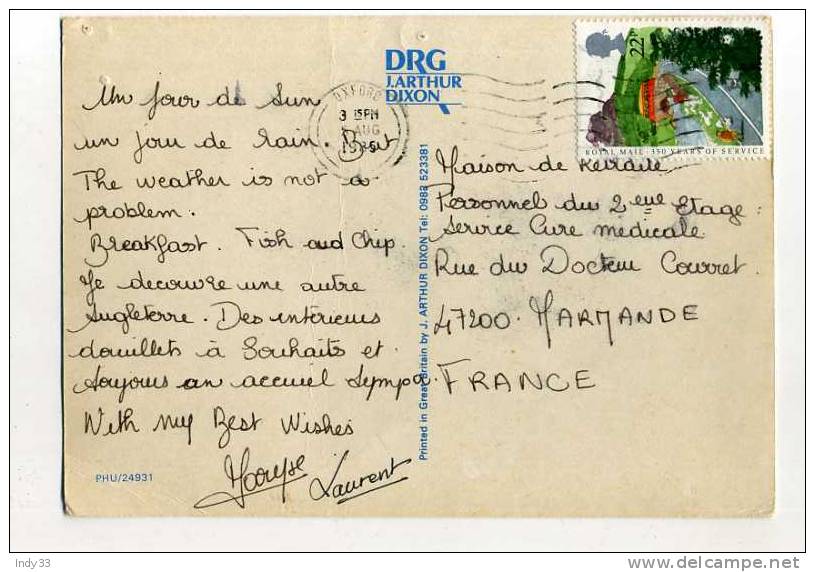 DRG
J. ARTHUR
DIXON
OXFORD
3 15PM
AUG
22P
ROYAL MAIL · 350 YEARS OF SERVICE
Un jour de Sun
un jour de Rain. But
The weather is not a
problem.
Breakfast. Fish and Chip.
Je decouvre une autre
Angleterre. Des intérieurs
douillets à Souhaits et
toujours un accueil Sympa.
With my Best Wishes
Maryse
Laurent
PHU/24931
Printed in Great Britain by J. ARTHUR DIXON Tel: 0983 523381
Maison de Retraite
Personnel du 2eme Etage:
Service Cure médicale
Rue du Docteur Courret.
47200. MARMANDE
FRANCE
Indy33
delcampe.net